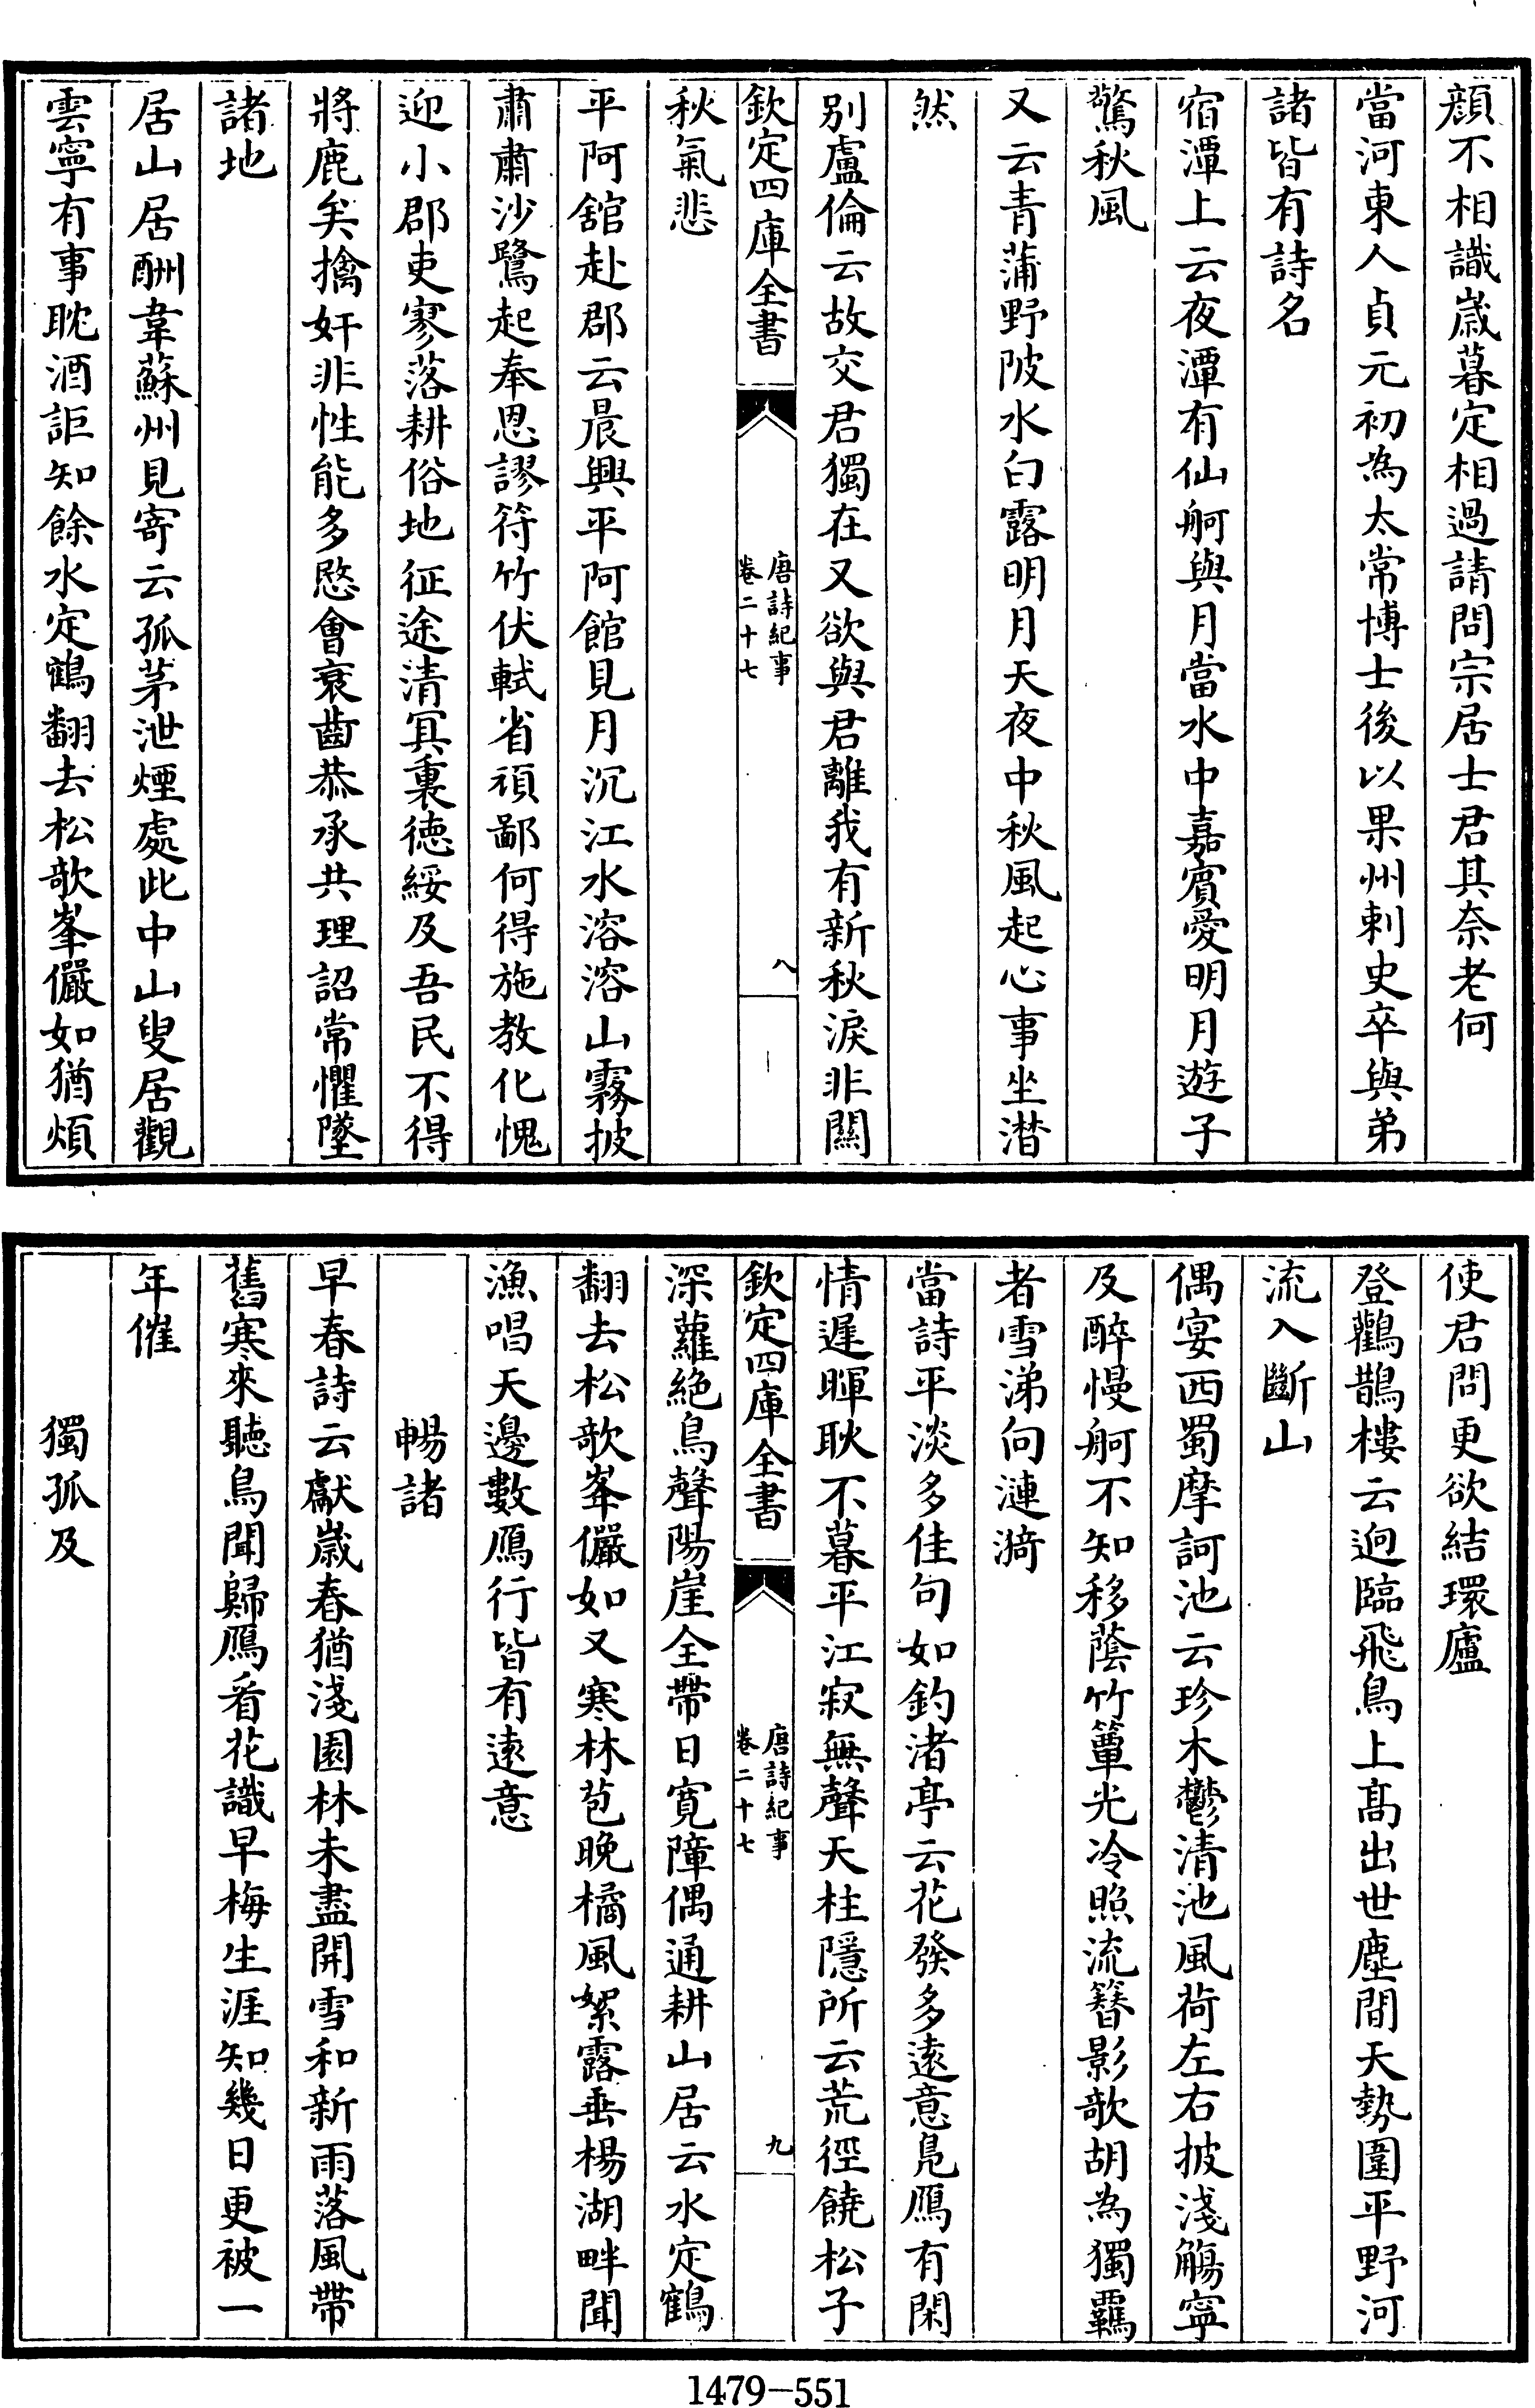 顔不相識嵗暮定相過請問宗居士君其奈老何
當河東人貞元初為太常博士後以果州刺史卒與弟
諸皆有詩名
宿潭上云夜潭有仙舸與月當水中嘉賓愛明月遊子
驚秋風
又云青蒲野陂水白露明月天夜中秋風起心事坐潛
然
別盧倫云故交君獨在又欲與君離我有新秋淚非關
秋氣悲
欽定四庫全書
唐詩紀事
卷二十七
八
平阿舘赴郡云晨興平阿館見月沉江水溶溶山霧披
肅肅沙鷺起奉恩謬符竹伏軾省頑鄙何得施教化愧
迎小郡吏寥落耕俗地征途清冥裏徳綏及吾民不得
將鹿矣擒奸非性能多愍會衰齒恭承共理詔常懼墜
諸地
居山居酬韋蘇州見寄云孤茅泄煙處此中山叟居觀
雲寧有事耽酒詎知餘水定鶴翻去松欹峯儼如猶煩
使君問更欲結環廬
登鸛鵲樓云逈臨飛鳥上髙出世塵間天勢圍平野河
流入斷山
偶宴西蜀摩訶池云珍木鬱清池風荷左右披淺觴寧
及醉慢舸不知移蔭竹簟光冷照流簪影欹胡為獨羇
者雪涕向漣漪
當詩平淡多佳句如釣渚亭云花發多遠意鳬鴈有閑
情遲暉耿不暮平江寂無聲天柱隱所云荒徑饒松子
欽定四庫全書
唐詩紀事
卷二十七
九
深蘿絶鳥聲陽崖全帶日寛障偶通耕山居云水定鶴
翻去松欹峯儼如又寒林苞晚橘風絮露垂楊湖畔聞
漁唱天邊數鴈行皆有遠意
暢諸
早春詩云獻嵗春猶淺園林未盡開雪和新雨落風帶
舊寒來聽鳥聞歸鴈看花識早梅生涯知幾日更被一
年催
獨孤及
1479-551